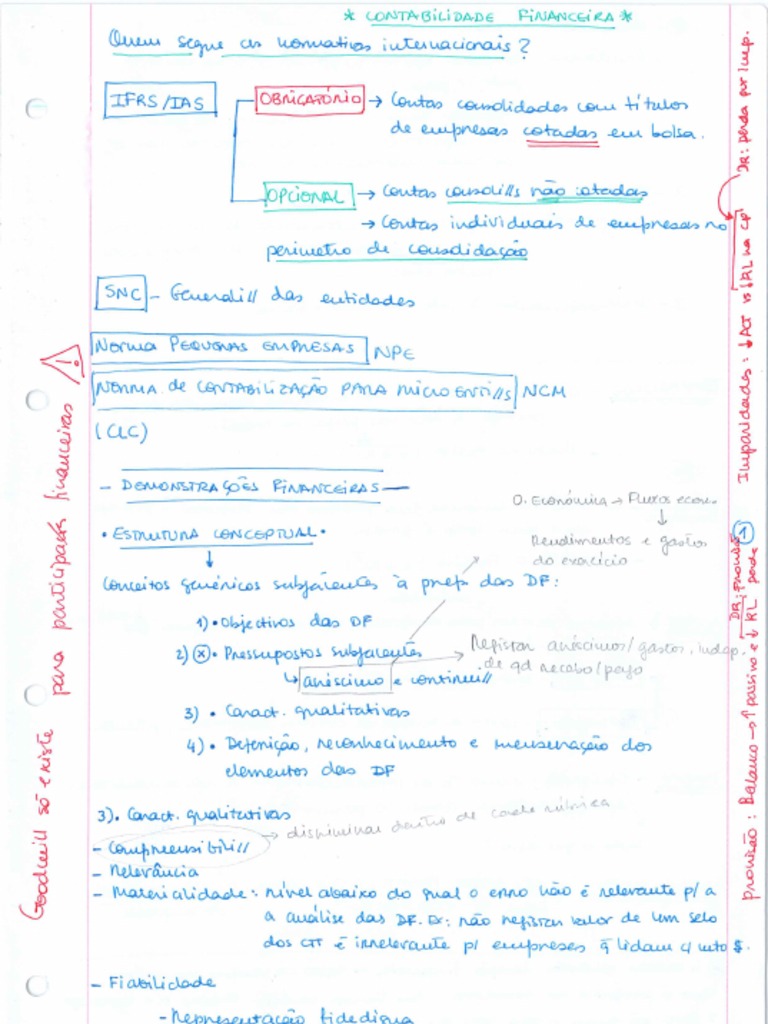 * CONTABILIDADE FINANCEIRA *
Quem segue as normativas internacionais?
IFRS/IAS
OBRIGATÓRIO → Contas consolidades com títulos
de empresas cotadas em bolsa.
OPCIONAL → Contas consoli// não cotadas
→ Contas individuais de empresas no
perímetro de consolidação
SNC - Generali// das entidades
NORMA PEQUENAS EMPRESAS NPE
NORMA DE CONTABILIZAÇÃO PARA MICRO ENTI//S NCM
(CLC)
- DEMONSTRAÇÕES FINANCEIRAS -
O. Económica → Fluxos econ.
↓
Rendimentos e gastos
do exercício
• ESTRUTURA CONCEPTUAL •
↓
Conceitos genéricos subjacentes à prep. das DF:
1) • Objectivos das DF
2) • Pressupostos subjacentes
↳ acréscimo e continui//
→ Registar acréscimos/gastos, indep.
de qd recebo/pago
3) • Caract. qualitativas
4) • Defenição, reconhecimento e mensuração dos
elementos das DF
3). Caract. qualitativas
- Compreensibili// → discriminar dentro de cada rúbrica
- Relevância
- Materialidade: nível abaixo do qual o erro não é relevante p/ a
a análise das DF. Ex: não registar valor de um selo
dos CTT é irrelevante p/ empresas q̄ lidam c/ mto $.
- Fiabilidade
- Representação fidedigna
Goodwill só existe para participações financeiras
DR: perda por imp.
Imparidades: ↓ ACT vs ↓ RL na CP
① DR: provisão perda
provisão: Balanço → ↑ passivo e ↓ RL